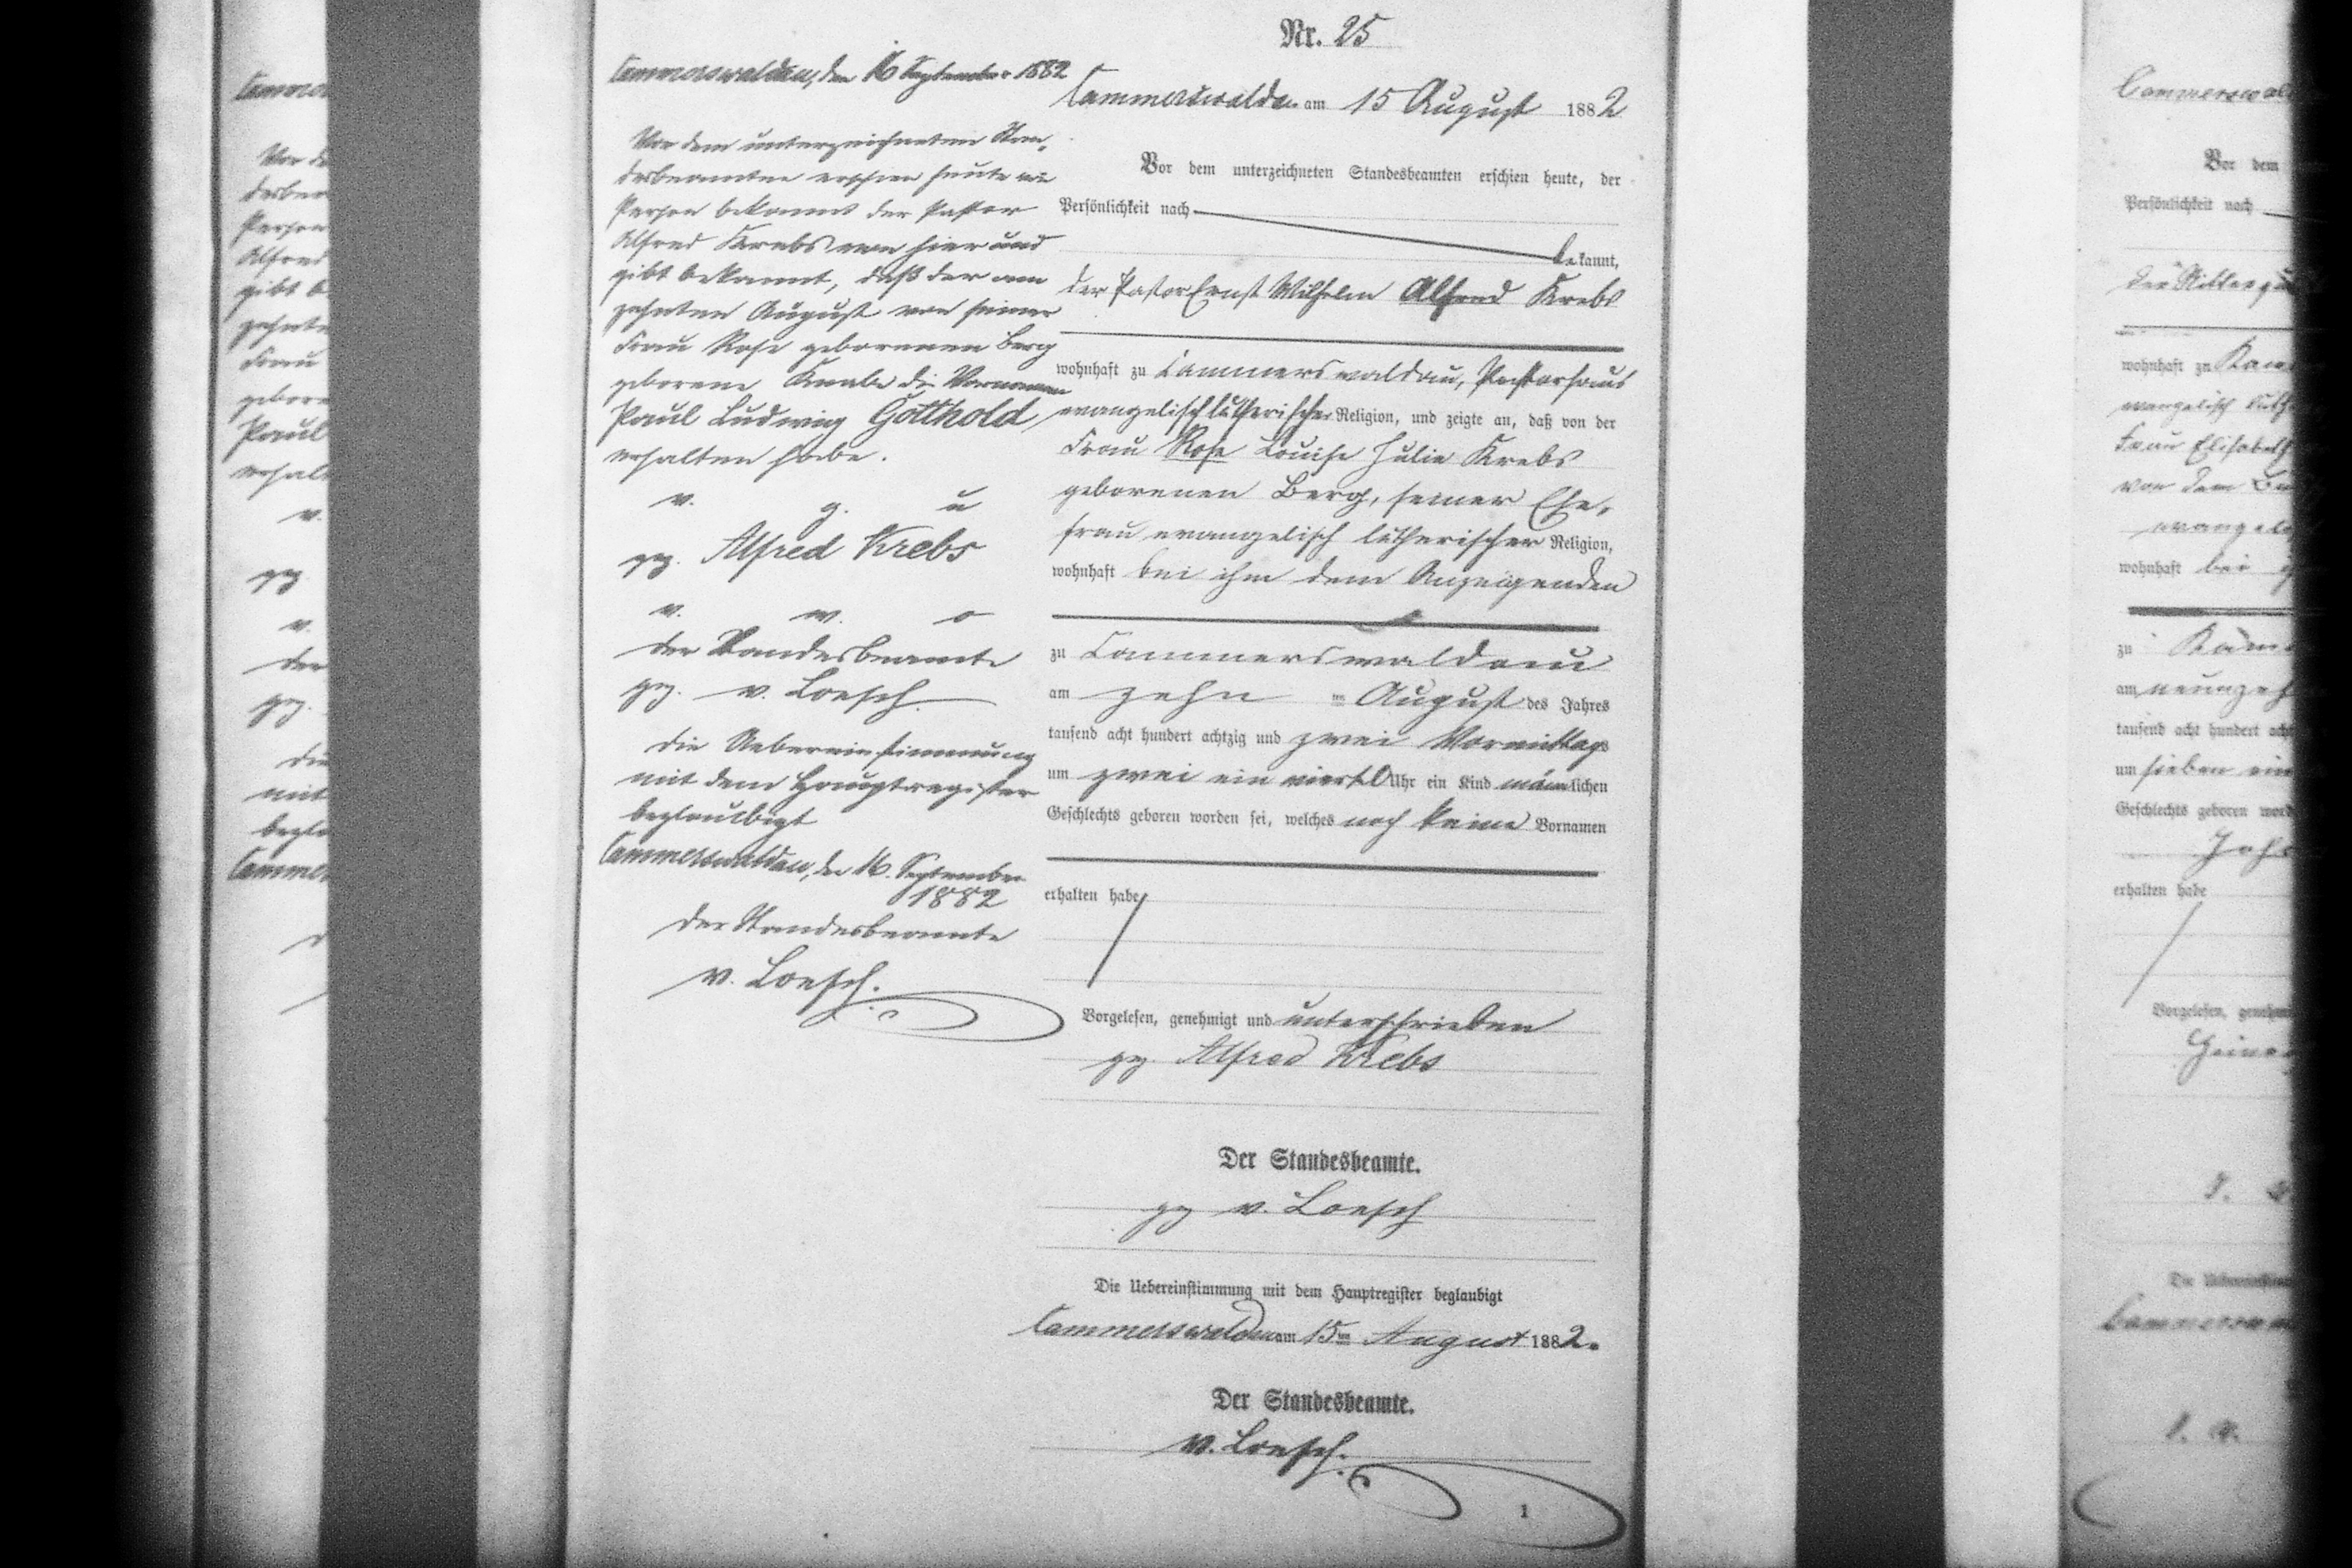 Nr. 25
Cammerswaldau, den 16 September 1882
Vor dem unterzeichneten Stan-
desbeamten erschien heute wie
Person bekannt der Pastor
Alfred Krebs von hier und
gibt bekannt, daß der am
zehnten August von seiner
Frau Rose geborenen Berg
geborene Knabe die Vornamen
Paul Ludwig Gotthold
erhalten habe.
v. g. u
gez. Alfred Krebs
v. w. o
der Standesbeamte
gez. v. Loesch
Die Uebereinstimmung
mit dem Hauptregister
beglaubigt
Cammerswaldau, den 16. September
1882
Der Standesbeamte
v. Loesch.
Cammerswaldau am 15 August 1882
Vor dem unterzeichneten Standesbeamten erschien heute, der
Persönlichkeit nach
bekannt,
der Pastor Ernst Wilhelm Alfred Krebs
wohnhaft zu Cammerswaldau, Pastorhaus
evangelisch lutherischer Religion, und zeigte an, daß von der
Frau Rose Louise Julie Krebs
geborenen Berg, seiner Ehe-
frau evangelisch lutherischer Religion,
wohnhaft bei ihm dem Anzeigenden
zu Cammerswaldau
am zehn ten August des Jahres
tausend acht hundert achtzig und zwei Vormittags
um zwei ein viertel Uhr ein Kind männlichen
Geschlechts geboren worden sei, welches noch keine Vornamen
erhalten habe
Vorgelesen, genehmigt und unterschrieben
gez Alfred Krebs
Der Standesbeamte.
gez v. Loesch
Die Uebereinstimmung mit dem Hauptregister beglaubigt
Cammerswaldau am 15ten August 1882.
Der Standesbeamte.
v. Loesch.
1
Vor dem
Persönlichkeit nach
wohnhaft zu
evangelisch
Frau Elisabeth
von dem
wohnhaft bei
zu
am
tausend acht hundert
um sieben
Geschlechts geboren
erhalten habe
Vorgelesen,